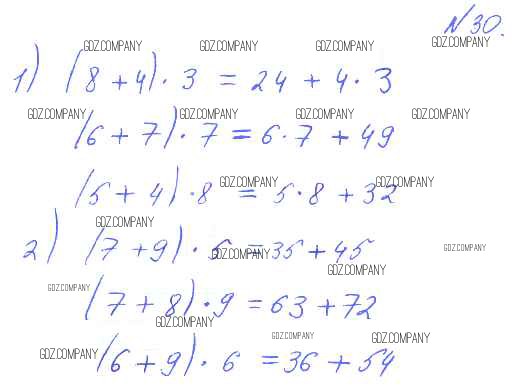 №30.
1) (8 + 4) · 3 = 24 + 4 · 3
(6 + 7) · 7 = 6 · 7 + 49
(5 + 4) · 8 = 5 · 8 + 32
2) (7 + 9) · 5 = 35 + 45
(7 + 8) · 9 = 63 + 72
(6 + 9) · 6 = 36 + 54
GDZ.COMPANY GDZ.COMPANY GDZ.COMPANY GDZ.COMPANY
GDZ.COMPANY GDZ.COMPANY GDZ.COMPANY GDZ.COMPANY
GDZ.COMPANY GDZ.COMPANY
GDZ.COMPANY
GDZ.COMPANY GDZ.COMPANY
GDZ.COMPANY
GDZ.COMPANY
GDZ.COMPANY
GDZ.COMPANY GDZ.COMPANY
GDZ.COMPANY